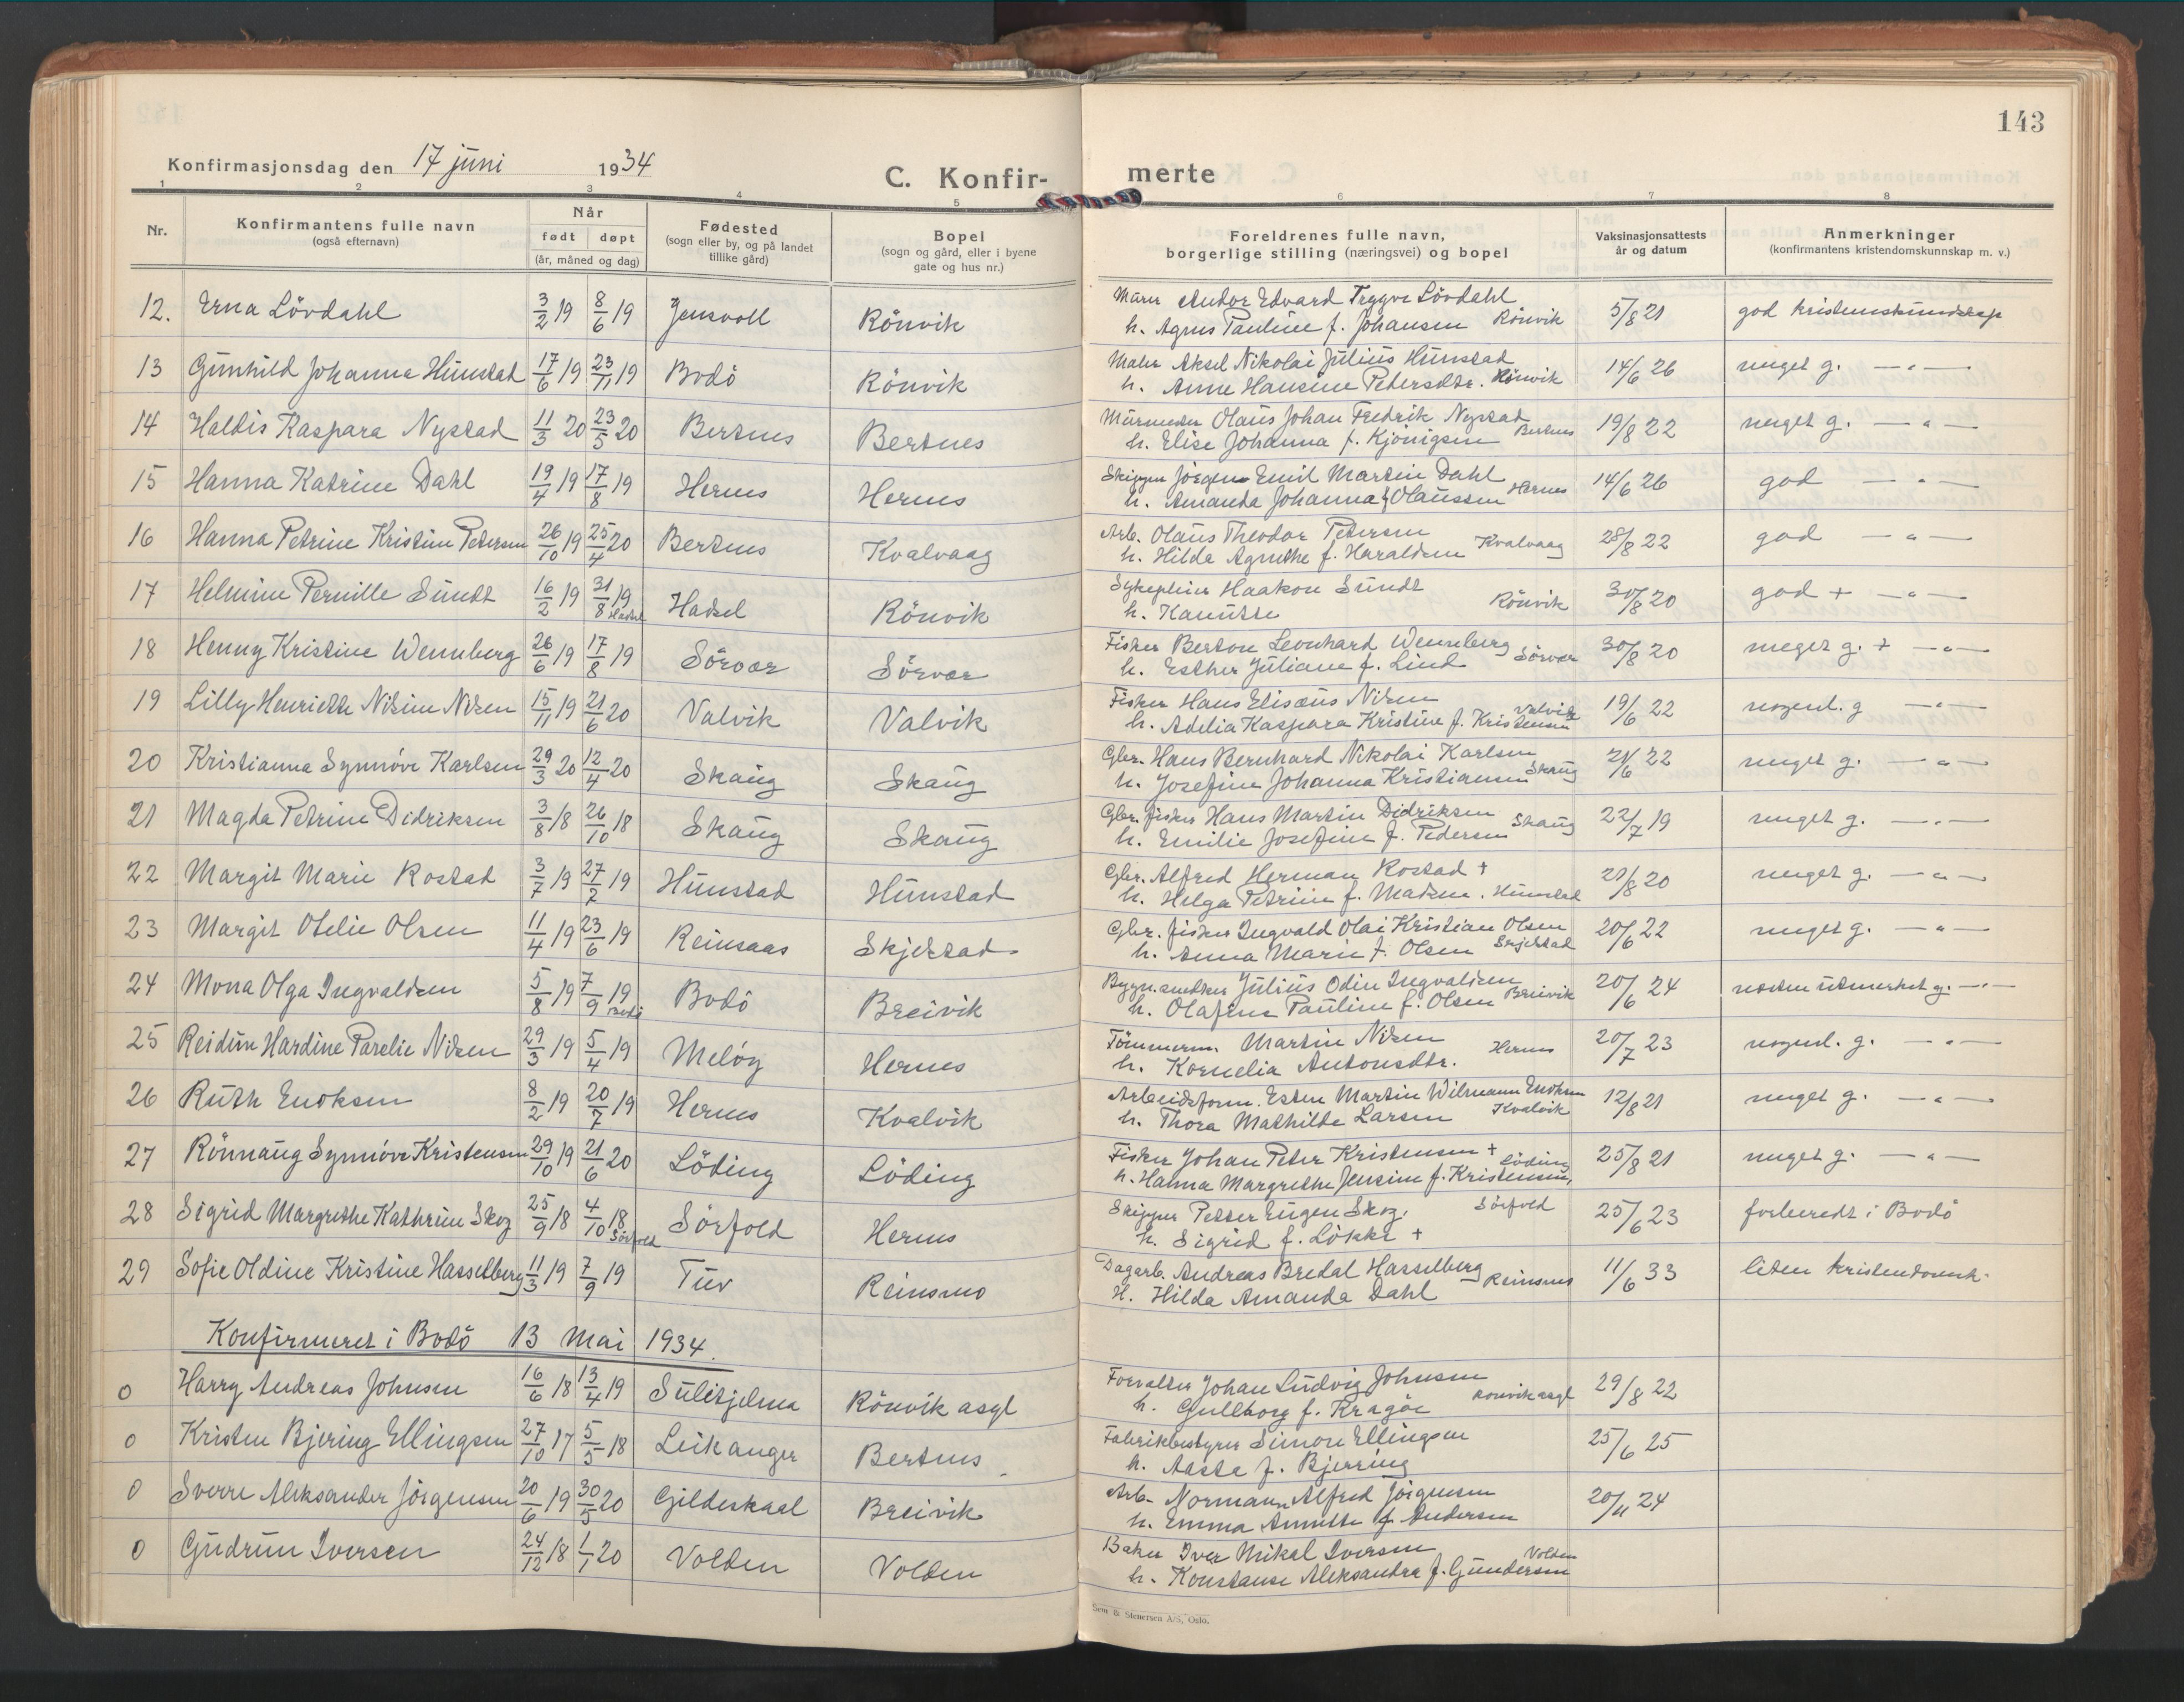 143
Konfirmasjonsdag den 17 juni 1934
C. Konfir-
merte
1 2 3 4 5 6 7 8
Nr.
Konfirmantens fulle navn
(også efternavn)
Når
født døpt
(år, måned og dag)
Fødested
(sogn eller by, og på landet
tillike gård)
Bopel
(sogn og gård, eller i byene
gate og hus nr.)
Foreldrenes fulle navn,
borgerlige stilling (næringsvei) og bopel
Vaksinasjonsattests
år og datum
Anmerkninger
(konfirmantens kristendomskunnskap m. v.)
12. Erna Lövdahl 3/2 19 8/6 19 Jensvoll Rönvik
Murer Andor Edvard Trygve Lövdahl
h. Agnes Pauline f. Johansen Rönvik 5/8 21 god kristenskundskap
13 Gunhild Johanna Hunstad 17/6 19 23/11 19 Bodö Rönvik
Maler Aksel Nikolai Julius Hunstad
h. Anne Hansine Petersdtr. Rönvik 14/6 26 meget g. — " —
14 Haldis Kaspara Nystad 11/3 20 23/5 20 Bertnes Bertnes
Murmester Olaus Johan Fredrik Nystad
h. Elise Johanna f. Kjönigsen Bertnes 19/8 22 meget g. — " —
15 Hanna Katrine Dahl 19/4 19 17/8 19 Hernes Hernes
Skipper Jörgen Emil Martin Dahl
h. Amanda Johanna f. Olaussen Hernes 14/6 26 god — " —
16 Hanna Petrine Kristine Petersen 26/10 19 25/4 20 Bertnes Kvalvaag
Arb. Olaus Theodor Petersen
h. Hilda Agnethe f. Haraldsen Kvalvaag 28/8 22 god — " —
17 Helmine Pernille Sundt 16/2 19 31/8 19 Hadsel Hadsel Rönvik
Sykepleier Haakon Sundt
h. Hanutte Rönvik 30/8 20 god + — " —
18 Henny Kristine Wennberg 26/6 19 17/8 19 Sörvær Sörvær
Fisker Berton Leonhard Wennberg
h. Esther Juliane f. Lind Sörvær 30/8 20 meget g. + — " —
19 Lilly Henriette Nisine Nilsen 15/11 19 21/6 20 Valvik Valvik
Fisker Hans Elisæus Nilsen Valvik
h. Adelia Kaspara Kristine f. Kristensen 19/6 22 nogenl. g — " —
20 Kristianna Synnöve Karlsen 29/3 20 12/4 20 Skaug Skaug
Gbr. Hans Bernhard Nikolai Karlsen
h. Josefine Johanna Kristiansen Skaug 21/6 22 meget g. — " —
21 Magda Petrine Didriksen 3/8 18 26/10 18 Skaug Skaug
Gbr. fisker Hans Martin Didriksen
h. Emilie Josefine f. Pedersen Skaug 22/7 19 meget g. — " —
22 Margit Marie Rostad 3/7 19 27/7 19 Hunstad Hunstad
Gbr. Alfred Herman Rostad +
h. Helga Petrine f. Madsen. Hunstad 21/8 20 meget g. — " —
23 Margit Otelie Olsen 11/4 19 23/6 19 Reinsaas Skjelstad
Gbr. fisker Ingvald Olai Kristian Olsen
h. Anna Marie f. Olsen Skjelstad 20/6 22 meget g. — " —
24 Mona Olga Ingvaldsen 5/8 19 7/9 19 Bodö Bodö Breivik
Julius Odin Ingvaldsen
h. Olafine Pauline f. Olsen Breivik 20/6 24 nesten utmerket g. — " —
25 Reidun Hardine Parelie Nilsen 29/3 19 5/4 19 Melöy Hernes
Tömmerm. Martin Nilsen
h. Kornelia Antonsdtr. Hernes 20/7 23 nogenl. g. — " —
26 Ruth Enoksen 8/2 19 20/7 19 Hernes Kvalvik
Arbeidsform. Esten Martin Wilmann Enoksen
h. Thora Mathilde Larsen Kvalvik 12/8 21 meget g. — " —
27 Rönnaug Synnöve Kristensen 29/10 19 21/6 20 Löding Löding
Fisker Johan Peter Kristensen + Löding
h. Hanna Margrethe Jensine f. Kristensen, 25/8 21 meget g. — " —
28 Sigrid Margrethe Kathrine Skog 25/9 18 4/10 18 Sörfold Sörfold Hernes
Skipper Petter Eugen Skog. Sörfold
h. Sigrid f. Lökke + 25/6 23 forberedt i Bodö
29 Sofie Oldine Kristine Hasselberg 11/3 19 7/9 19 Tuv Reinsmo
Dagarb. Andreas Bredal Hasselberg
H. Hilda Amanda Dahl Reinsnes 11/6 33 liten kristendomsk.
Konfirmeret i Bodö 13 Mai 1934.
0 Harry Andreas Johnsen 16/6 18 13/4 19 Sulitjelma Rönvik asyl
Forvalter Johan Ludvig Johnsen
h. Gullborg f. Kragöe Rönvik asyl 29/8 22
0 Kristen Bjering Ellingsen 27/10 17 5/5 18 Leikanger Bertnes
Fabrikbestyrer Simon Ellingsen
h. Aasta f. Bjerring 25/6 25
0 Sverre Aleksander Jörgensen 20/6 19 30/5 20 Gildeskaal Breivik
Arb. Normann Alfred Jörgensen
h. Emma Annette f. Andersen 20/11 24
0 Gudrun Iversen 24/12 18 1/1 20 Volden Volden
Baker Iver Mikal Iversen Volden
h. Konstanse Aleksandra f. Gundersen
Sem & Stenersen A/S, Oslo.